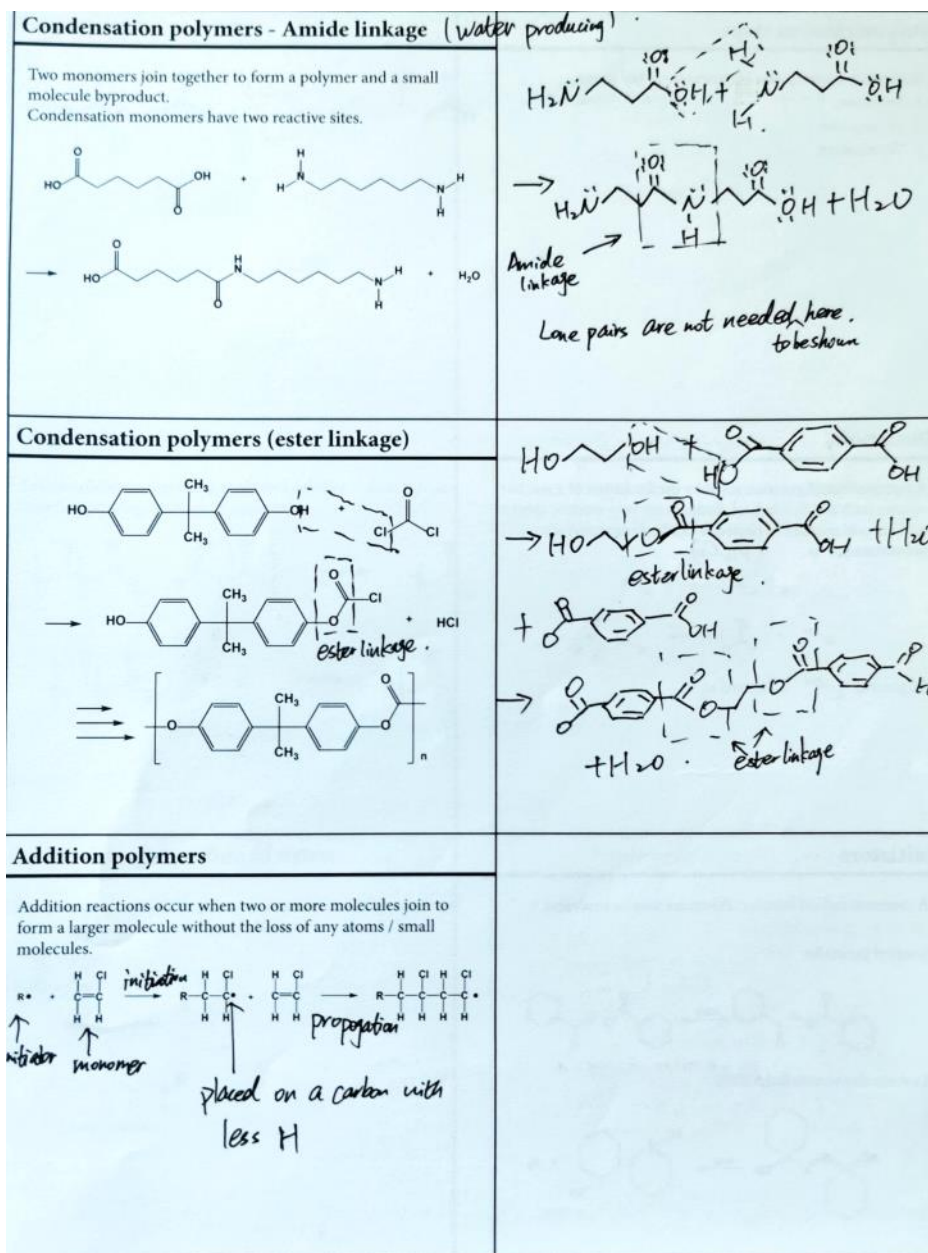 Condensation polymers - Amide linkage (water producing)
Two monomers join together to form a polymer and a small
molecule byproduct.
Condensation monomers have two reactive sites.
HO O O OH + H N H N H H
HO O H N O N H H + H2O
H2N O OH + H N H O OH
H2N O N H O OH + H2O
Amide
linkage
Lone pairs are not needed here.
to be shown
Condensation polymers (ester linkage)
HO CH3 CH3 OH + O Cl Cl
HO CH3 CH3 O O Cl + HCl
ester linkage.
O CH3 CH3 O O n
HO OH + O HO O OH
HO O O O OH + H2O
ester linkage.
+ O O O OH
O O O O O O O H
+ H2O.
ester linkage
Addition polymers
Addition reactions occur when two or more molecules join to
form a larger molecule without the loss of any atoms / small
molecules.
initiation
R• + H Cl C=C H H R H Cl C–C• H H + H Cl C=C H H R H Cl H Cl C–C–C–C• H H H H
propogation
monomer
placed on a carbon with
less H